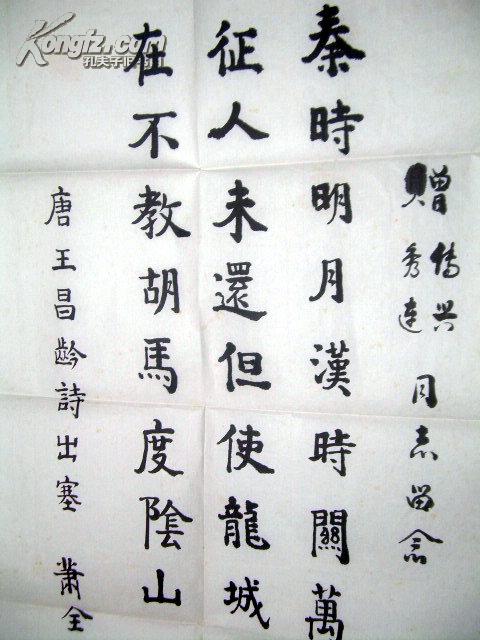 Kongfz.com
孔夫子旧书网
贈
秀連
同志留念
秦時明月漢時關萬
征人未還但使龍城
在不教胡馬度陰山
唐王昌齡詩出塞 蕭全